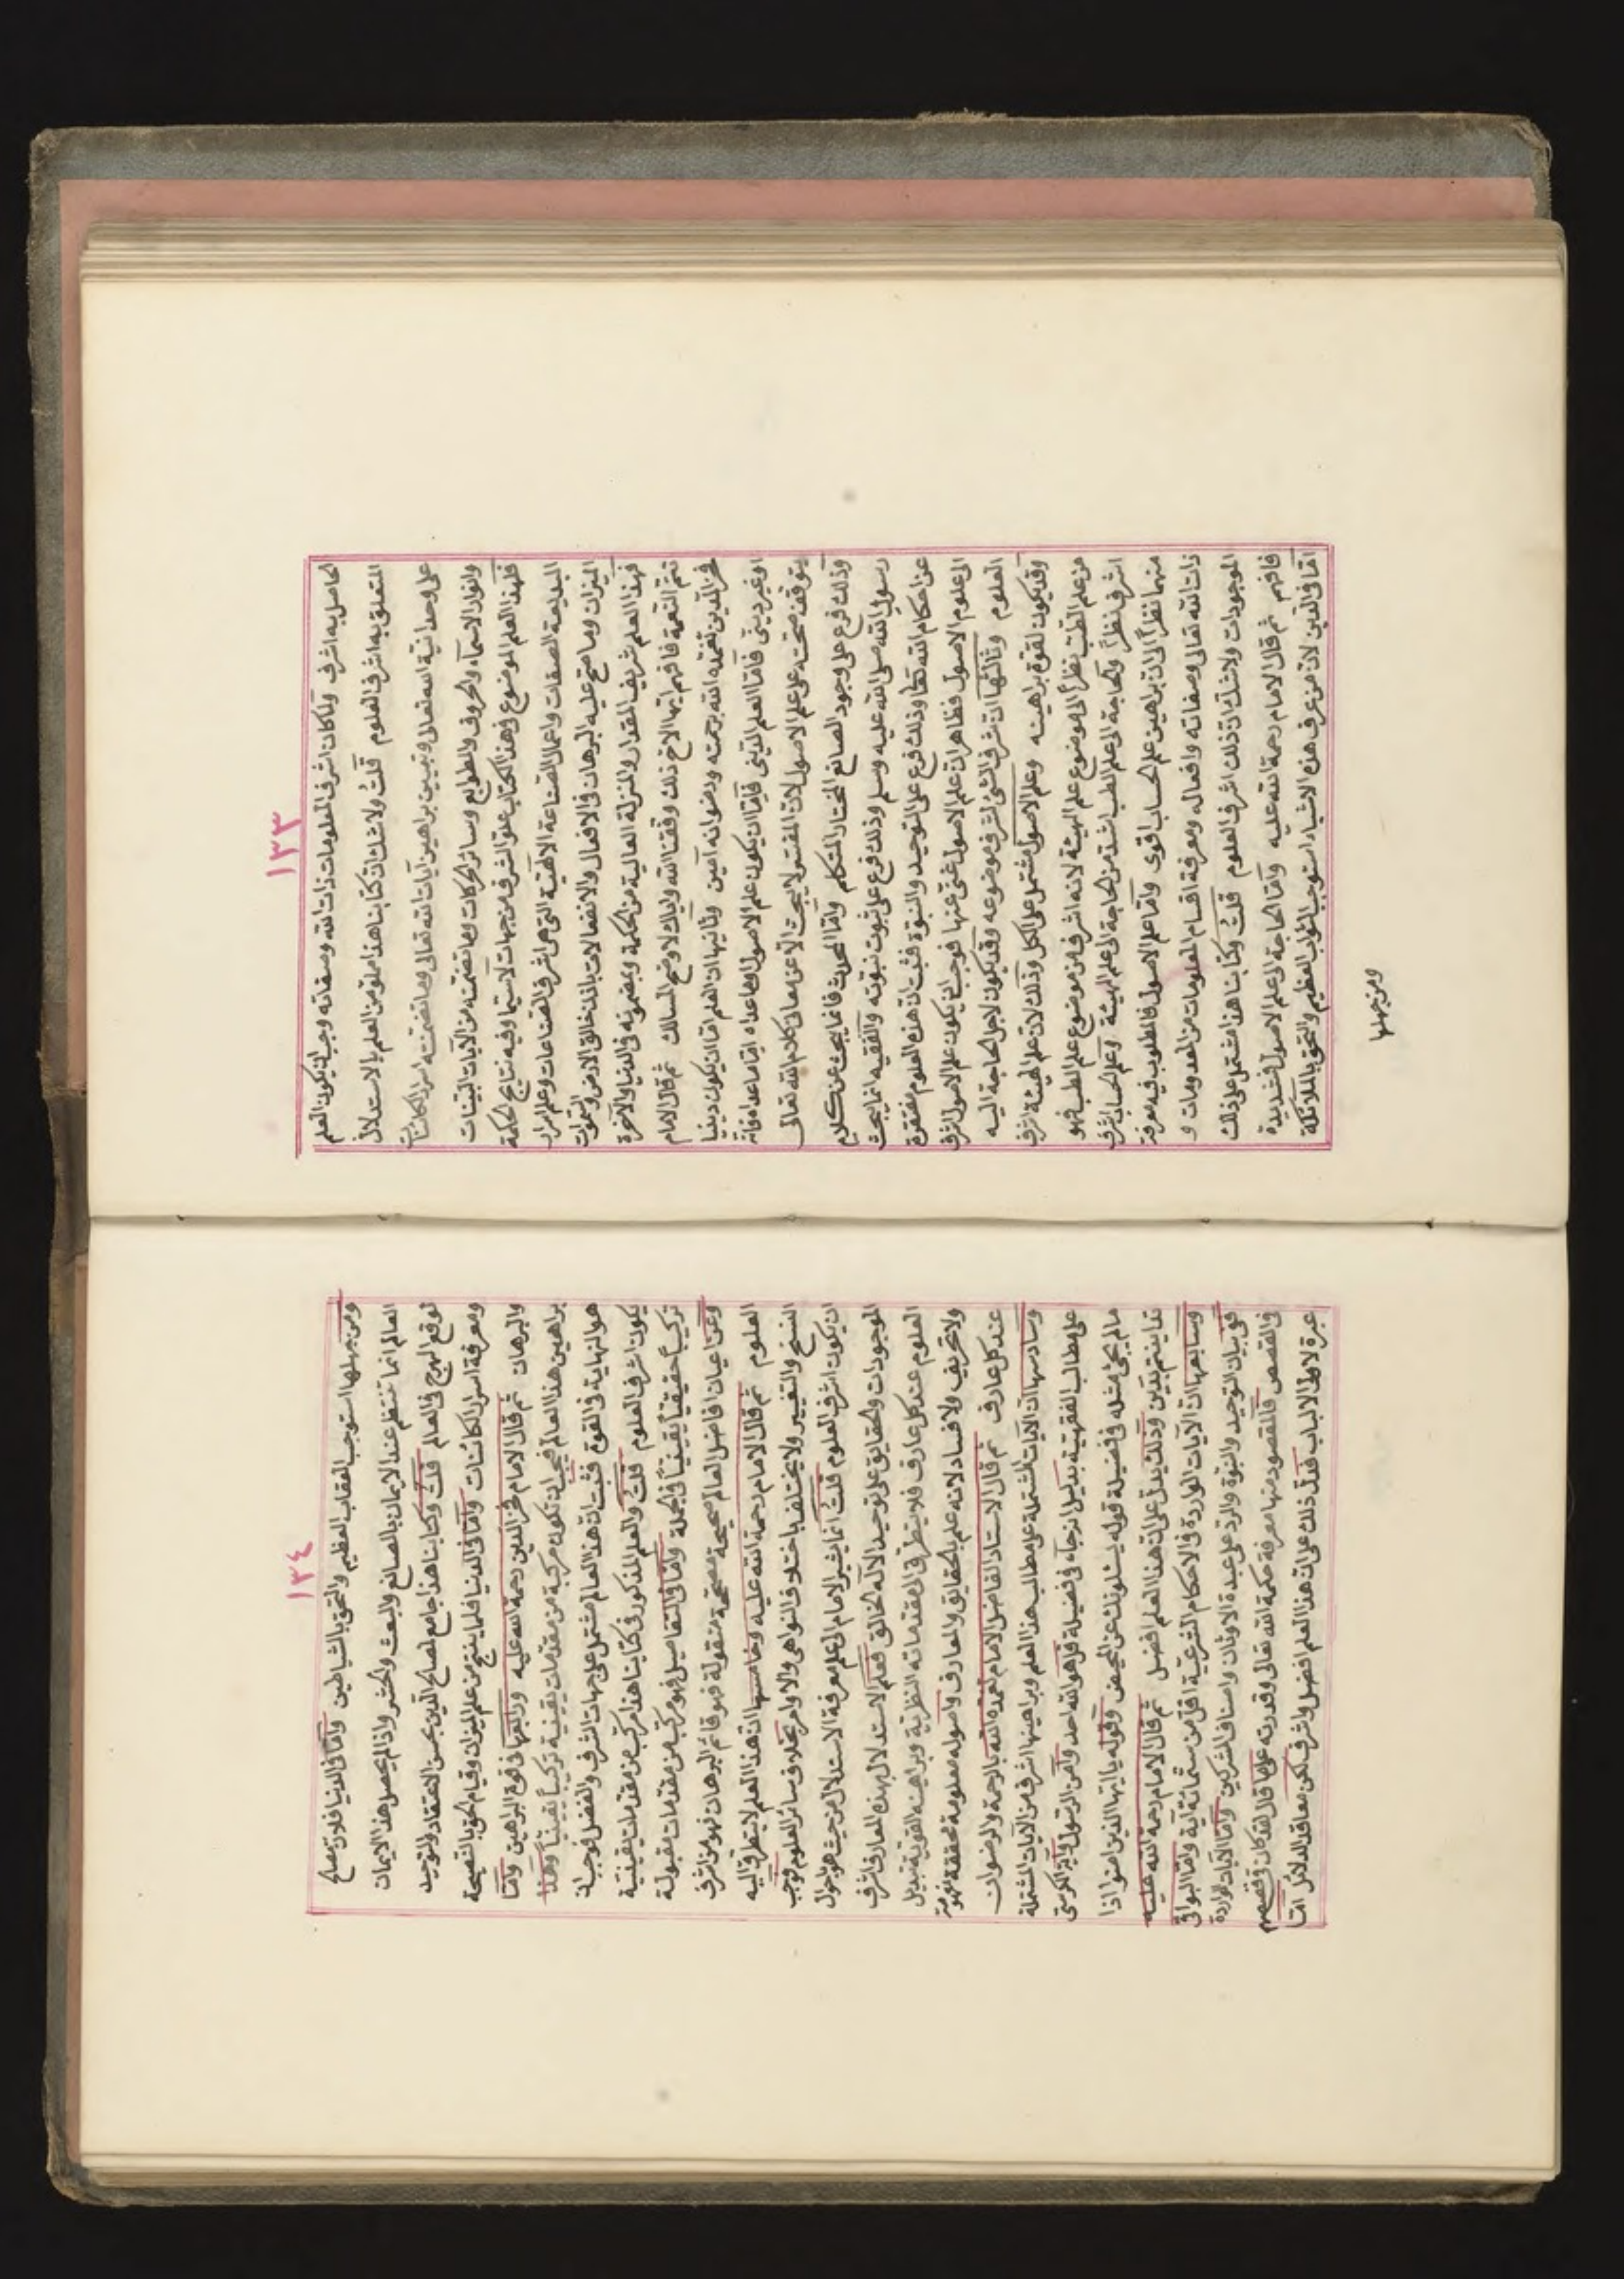 ١٣٣
الحاصل به اشرف ولما كان اشرف المعلومات ذات الله وصفاته وجب ان يكون العلم
المتعلق به اشرف العلوم قلت ولا شك ان كتابنا هذا مملو من العلم بالاستدلال
على وحدانية الله تعالى وتبيين براهين آيات الله تعالى وما تضمنته اسرار الكائنات
وانوار الاسماء والحروف والطوابع وسائر الحركات وما تضمنته من الآيات البينات
فلهذا العلم الموضوع في هذا الكتاب علو الشرف من جهات لا سيما وفيه نتايج الحكمة
البديعة الصفات واعمال الصناعة الالهية التي هي اشرف الصناعات وعلم اسرار
الميزان وما صح عليه البرهان في الافعال والانفعالات باذن خالق الارض والسموات
فهذا العلم شريف المقدار والمنزلة العالية من الحكمة وبمضمونه في الدنيا والآخرة
تتم النعمة فافهم ايها الاخ ذلك وفقنا الله واياك لاوضح المسالك ثم قال الامام
فخر الدين تغمده الله برحمته ورضوانه آمين وثانيها ان العلم اما ان يكون دينيا
او غير ديني فاما العلم الديني فاما ان يكون علم الاصول او ما عداه اما ما عداه فانه
يتوقف صحته على علم الاصول لان المفسر لا يبحث الا عن معاني كلام الله تعالى
وذلك فرع على وجود الصانع المختار المتكلم واما المحدث فانما يبحث عن كلام
رسول الله صلى الله عليه وسلم وذلك فرع على ثبوت نبوته والفقيه انما يبحث
عن احكام الله تعالى وذلك فرع على التوحيد والنبوة فثبت ان هذه العلوم مفتقرة
الى علوم الاصول فظاهر ان علم الاصول غني عنها فوجب ان يكون علم الاصول اشرف
العلوم وثالثها ان شرف الشئ لشرف موضوعه وقد يكون لاجل الحاجة اليه
وقد يكون لقوة براهينه وعلم الاصول مشتمل على الكل وذلك لان علم الهيئة اشرف
من علم الطب نظرا الى موضوع علم الهيئة لانه اشرف من موضوع علم الطب فهو
اشرف نظرا والحاجة الى علم الطب اشد من الحاجة الى علم الهيئة وعلم الحساب اشرف
منهما نظرا الى ان براهين علم الحساب اقوى واما علم الاصول فالمطلوب فيه معرفة
ذات الله تعالى وصفاته وافعاله ومعرفة اقسام المعلومات من المعدومات و
الموجودات ولا شك ان ذلك اشرف العلوم قلت وكتابنا هذا اشتمل على ذلك
فافهم ثم قال الامام رحمة الله عليه واما الحاجة الى علم الاصول فشديدة
اما في الدين لان من عرف هذه الاشياء استوجب الثواب العظيم والتحق بالملائكة
ومن جهلها
١٣٤
ومن جهلها استوجب العقاب العظيم والتحق بالشياطين واما في الدنيا فلان مصالح
العالم انما تنتظم عند الايمان بالصانع والبعث والحشر واذا لم يحصل هذا الايمان
لوقع الهرج في العالم قلت وكتابنا هذا جامع لصالح الدين بحسن الاعتقاد والتوحيد
ومعرفة اسرار الكائنات واما في الدنيا فلما ينتج من علم الميزان وقيام الحق بالنصيحة
والبرهان ثم قال الامام فخر الدين رحمة الله عليه ورابعها في قوة البراهين واما
براهين هذا العالم فيجب ان تكون مركبة من مقدمات يقينية تركيبا يقينيا وهذا
هو النهاية في القوة فثبت ان هذا العالم مشتمل على جهات الشرف والفضل فوجب ان
يكون اشرف العلوم قلت والعلم المذكور في كتابنا هذا مركب من مقدمات يقينية
تركيبا حقيقيا يقينيا في الجملة واما في التفاصيل فهو مركب من مقدمات مقبولة
وعن اعيان افاضل العالم صحيحة مصححة منقولة فهو قائم البرهان فهو من اشرف
العلوم ثم قال الامام رحمة الله عليه وخامسها ان هذا العلم لا يتطرق اليه
النسخ والتغيير ولا يختلف باختلاف النواهي والاوامر بخلاف سائر العلوم فوجب
ان يكون اشرف العلوم قلت انما يشير الامام الى علم معرفة الاستدلال من حيث هو باحوال
الموجودات والحقايق على توحيد الاله الخالق فعلم الاستدلال بهذه المعارف اشرف
العلوم عند كل عارف فلا يتطرق الى مقدماته النظرية وبراهينه القوية تبديل
ولا تحريف ولا فساد لانه علم بالحقايق والمعارف واصوله معلومة محققة مفهومة
عند كل عارف ثم قال الاستاذ الفاضل الامام تغمده الله بالرحمة والرضوان
وسادسها ان الآيات المشتملة على مطالب هذا العلم وبراهينها اشرف من الآيات المشتملة
على مطالب الفقهية بدليل انه جاء في فضيلة قل هو الله احد وآمن الرسول وآية الكرسي
ما لم يجئ مثله في فضيلة قوله يسئلونك عن المحيض وقوله يا ايها الذين امنوا اذا
تداينتم بدين وذلك يدل على ان هذا العلم افضل ثم قال الامام رحمة الله عليه
وسابعها ان الآيات الواردة في الاحكام الشرعية اقل من ستمائة آية واما البواقي
ففي بيان التوحيد والنبوة والرد على عبدة الاوثان واصناف المشركين واما الآيات الواردة
في القصص فالمقصود منها معرفة حكمة الله تعالى وقدرته على ما قال لقد كان في قصصهم
عبرة لاولي الالباب فدل ذلك على ان هذا العلم افضل واشرف لكن معاقد الدلائل اما